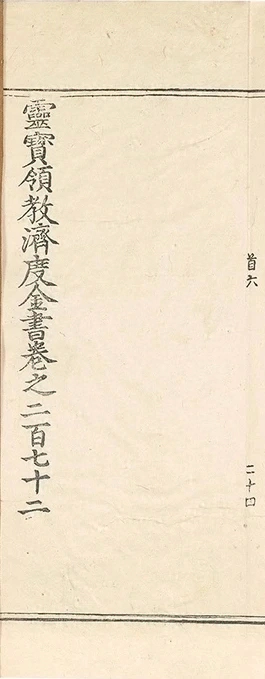 首六
二十四
靈寶領教濟度金書卷之二百七十二